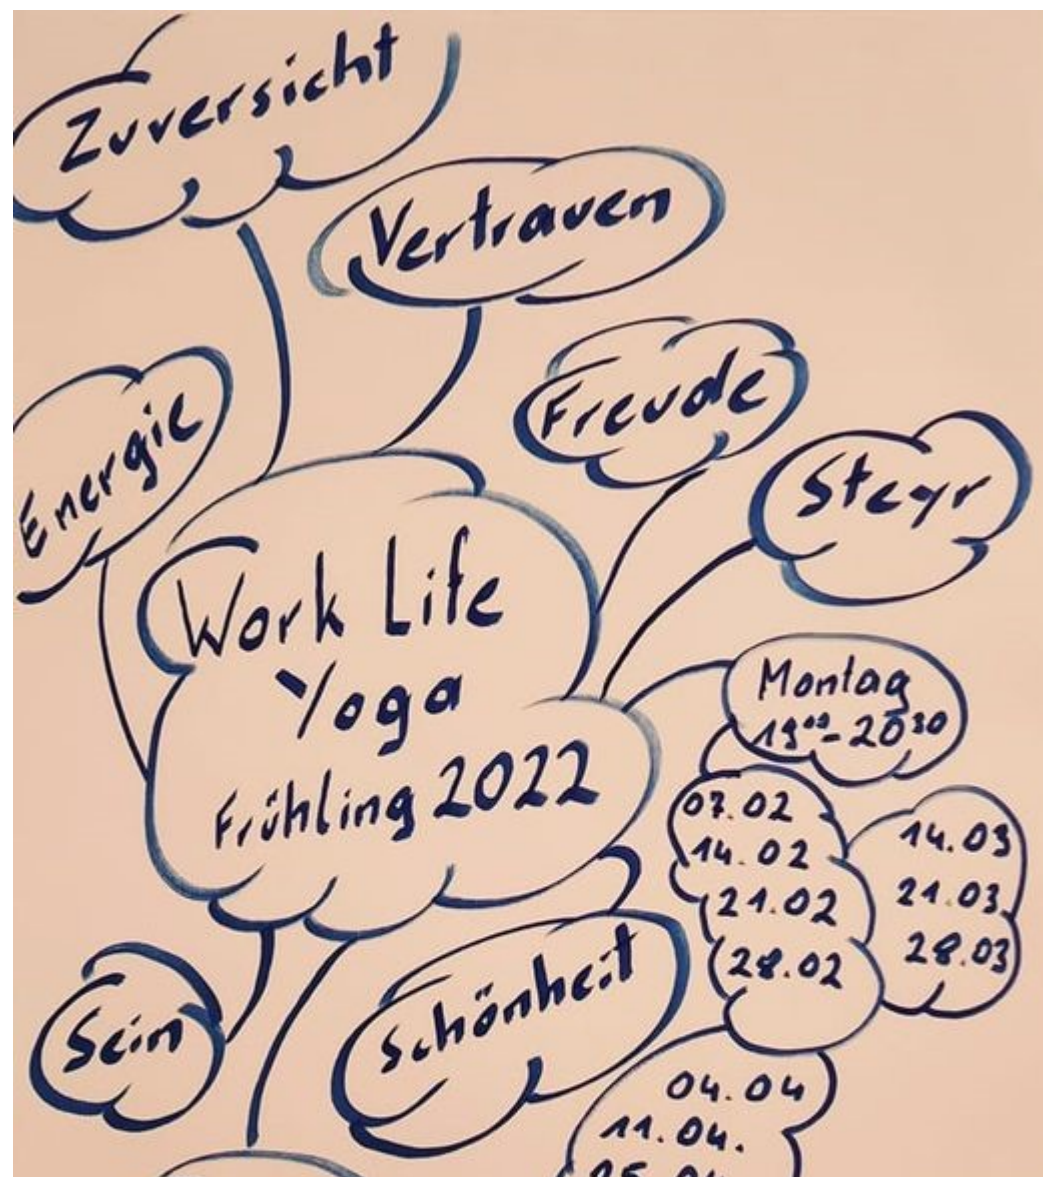 Zuversicht
Vertrauen
Freude
Energie
Steyr
Work Life
Yoga
Frühling 2022
Montag
19⁰⁰-20³⁰
07.02
14.02
21.02
28.02
14.03
21.03
28.03
Sein
Schönheit
04.04
11.04.